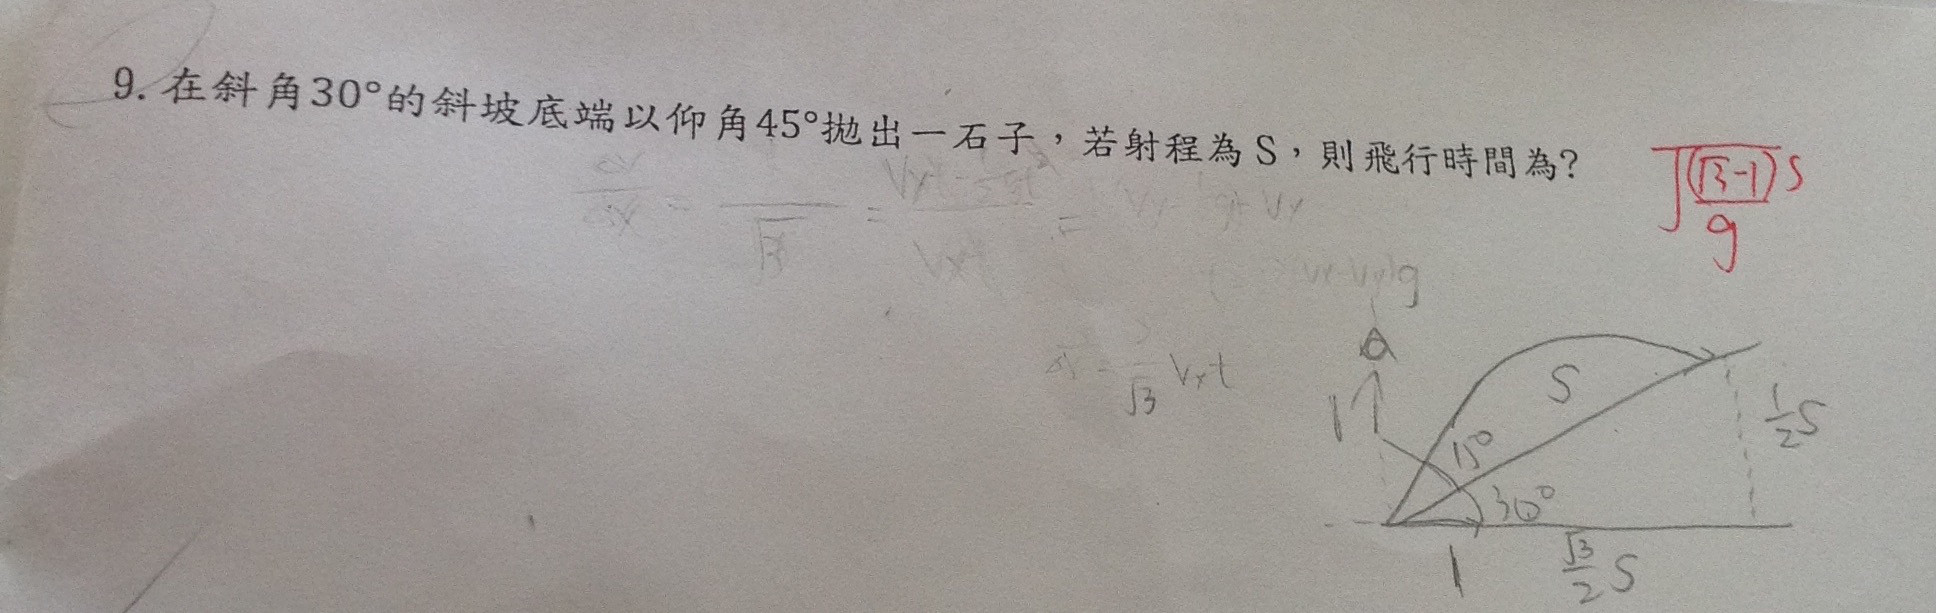 9. 在斜角30°的斜坡底端以仰角45°拋出一石子，若射程為S，則飛行時間為?
√((√3-1)S/g)
S
15°
30°
1/2 S
1
1
√3/2 S